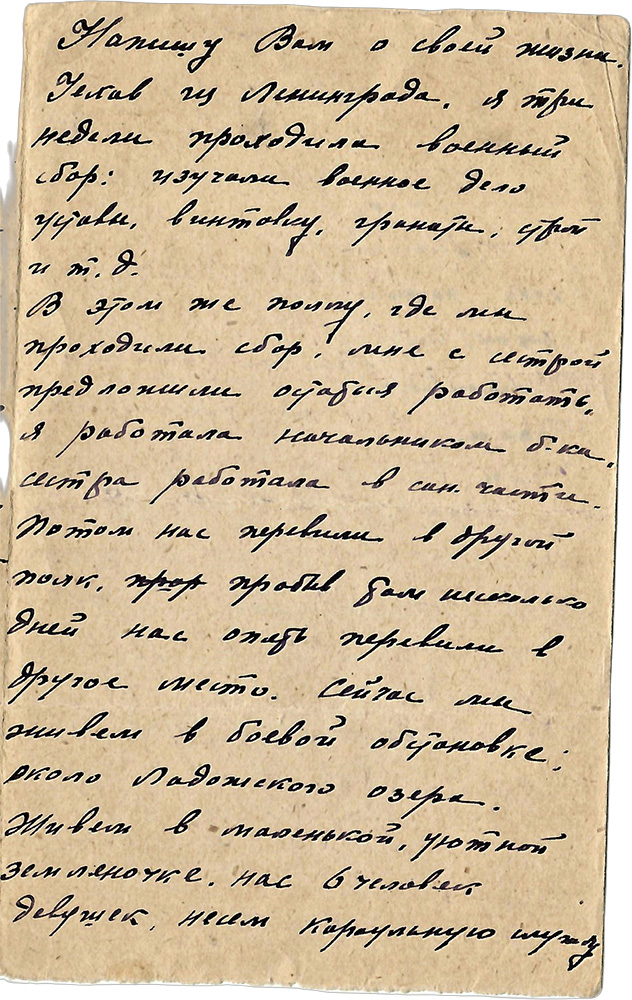 Напишу Вам о своей жизни.
Уехав из Ленинграда. я три
недели проходила военный
сбор: изучали военное дело
уставы, винтовку, гранаты, строй
и т. д.
В этом же полку, где мы
проходили сбор, мне с сестрой
предложили остаться работать,
я работала начальником б-ка,
сестра работала в сан. части.
Потом нас перевили в другой
полк, прор пробыв там несколько
дней нас опять перевили в
другое место. Сейчас мы
живем в боевой обстановке;
около Ладожского озера.
Живем в маленькой, уютной
земляночке. нас 6 человек
девушек, несем караульную службу